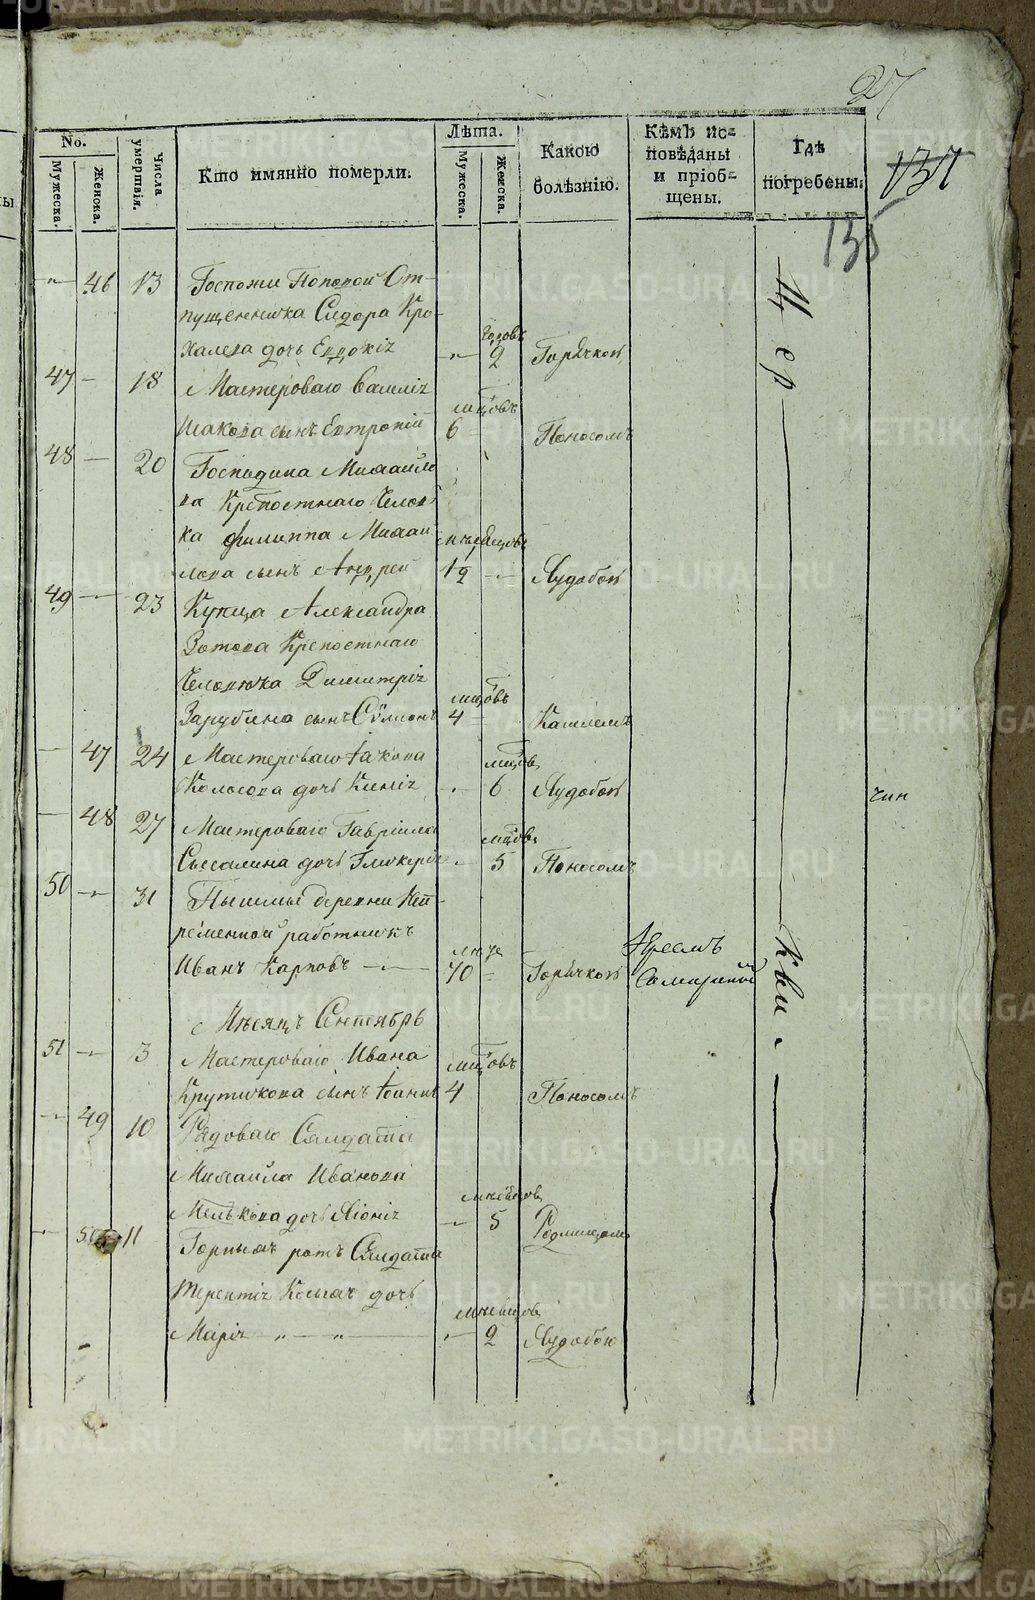 27
137
135
No.
Мужеска.
Женска.
Числа умертвія.
Кто имянно померли.
Лѣта.
Мужеска.
Женска.
Какою болѣзнію.
Кѣмъ исповѣданы и пріобщены.
Гдѣ погребены.
46 13 Госпожи Поповой От-
пущенника Сидора Кро-
халева дочь Евдокія
годовъ
2 Горячкой
47 18 Мастероваго Василія
Исакова сынъ Евтропій
мцовъ
6 Поносомъ
48 20 Господина Михайло
ва Крѣпостнаго Челов
ка Филиппа Михаи
лова сынъ Андрей
мѣсяцовъ
1/2 Худобой
49 23 Купца Александра
Зотова Крепостнаго
Человѣка Димитрія
Зарубина сынъ Сѵмионъ
мцовъ
4 Кашлемъ
47 24 Мастероваго Іакова
дочь
мцовъ
6 Худобой
48 27 Мастероваго Гавріила
дочь Гликерія
мцовъ
5 Поносомъ
50 31 Пышмы деревни Неп-
ременной работникъ
Иванъ Карповъ
70 Горячкой
Іереемъ
чин
Мѣсяцъ Сентябрь
51 3 Мастероваго Ивана
Крутикова сынъ Іоаннъ
мцовъ
4 Поносомъ
49 10 Рядоваго Салдата
Михаила Иванова
Мелькова дочь
мѣсяцов
5 Родимцомъ
50 11 Горныхъ ротъ Салдата
Терентія дочь
Марія
мѣсяцов
2 Худобою